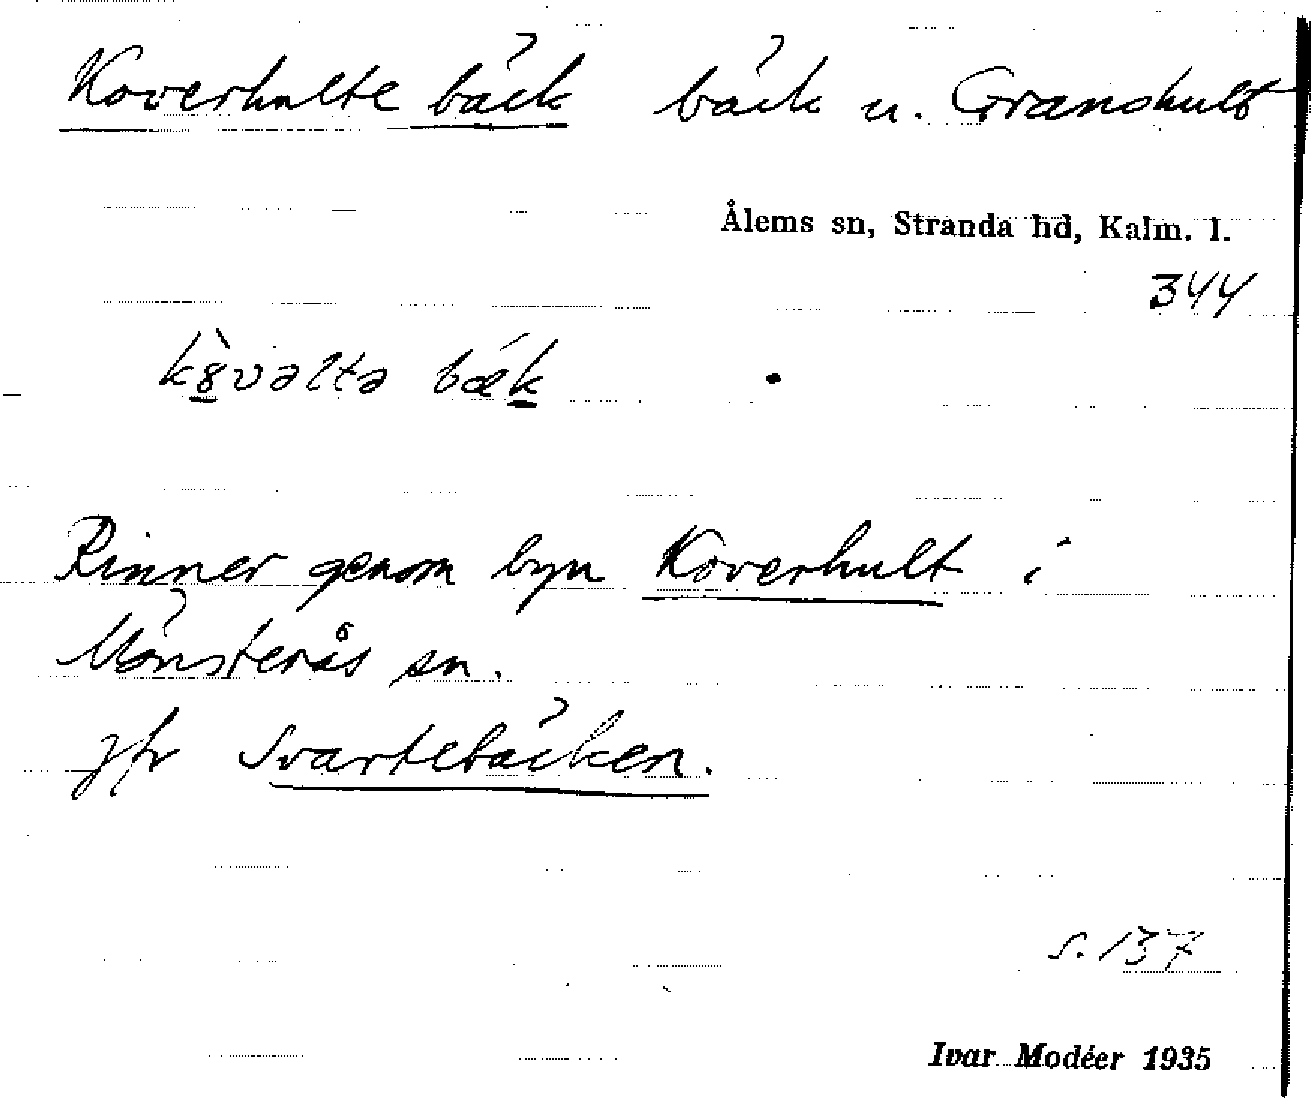 Koverhulte bäck bäck u. Granshult
Ålems sn, Stranda hd, Kalm. l.
344
k8̀vəltə bǽk
Rinner genom byn Koverhult i
Mönsterås sn.
jfr Svartebäcken.
s. 137
Ivar Modéer 1935